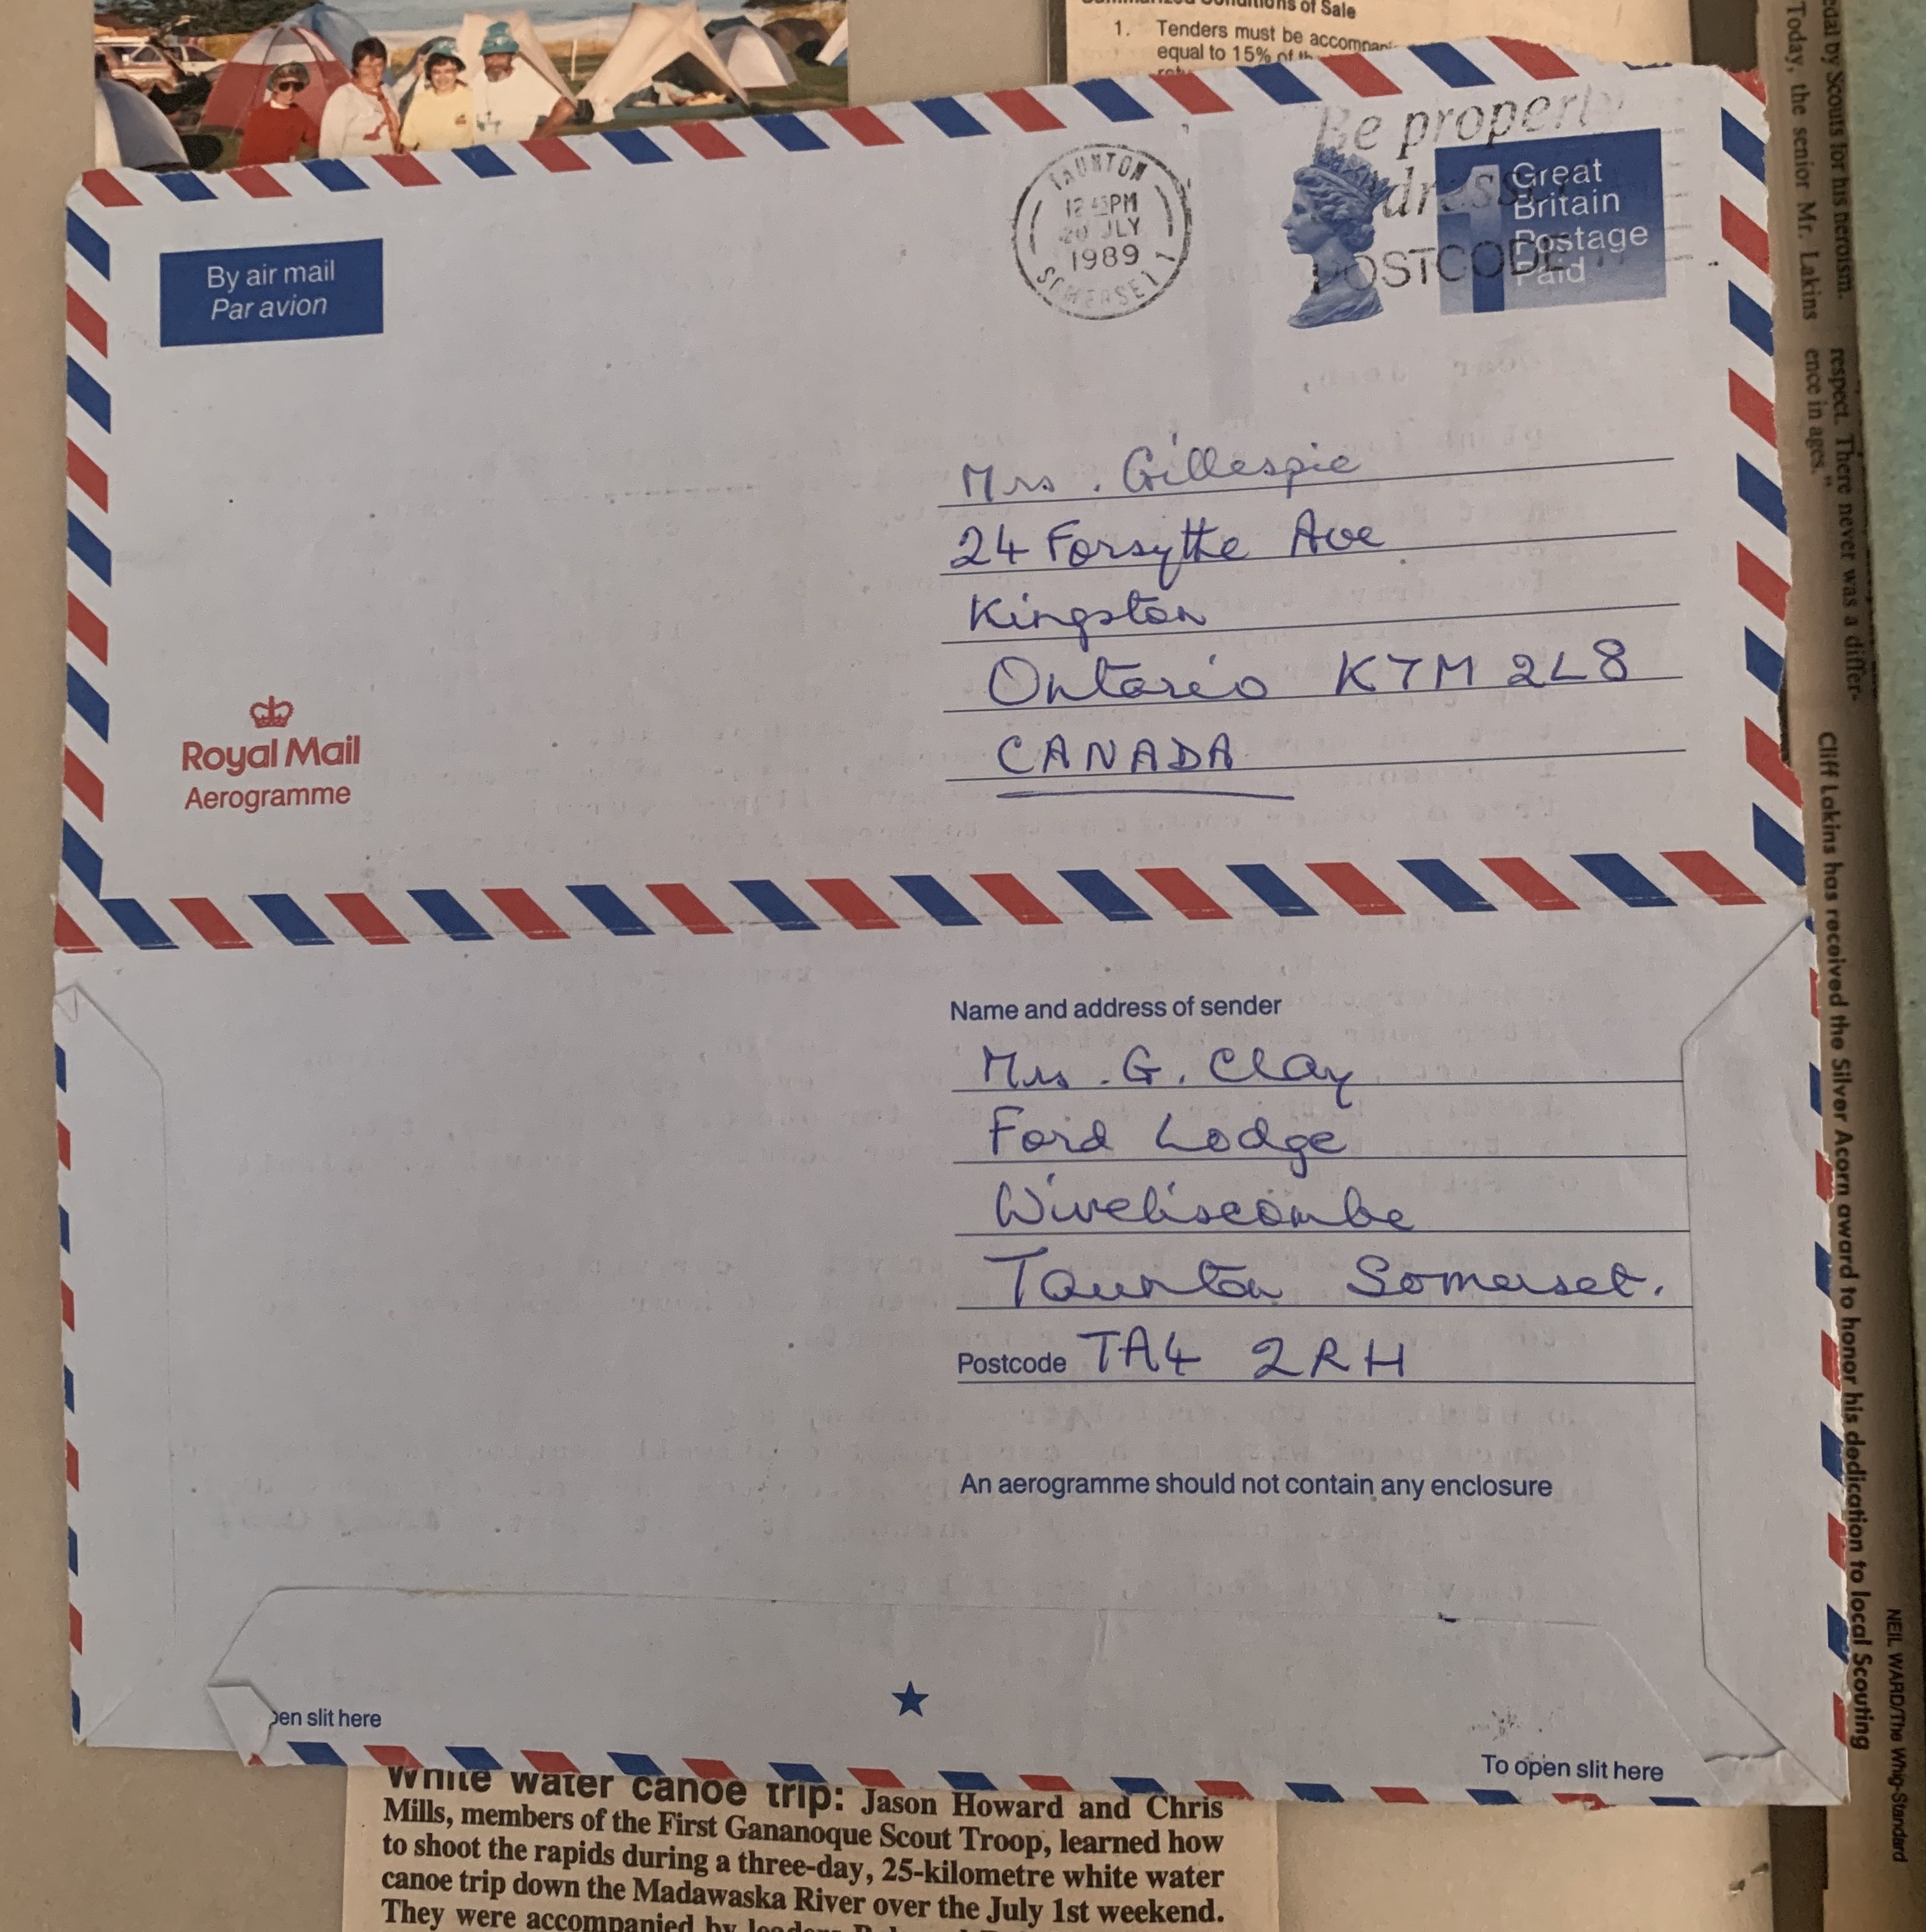 of Sale
1. Tenders must be
equal to 15% of
Be properly
POSTCODE
TAUNTON
PM
1989
SOMERSET
1
Great
Britain
Postage
Paid
By air mail
Par avion
Mrs. Gillespie
24 Forsythe Ave
Kingston
Ontario K7M 2L8
CANADA
Royal Mail
Aerogramme
Name and address of sender
Mrs. G. Clay
Ford Lodge
Wiveliscombe
Taunton Somerset.
Postcode TA4 2RH
An aerogramme should not contain any enclosure
slit here
To open slit here
White water canoe trip: Jason Howard and Chris
Mills, members of the First Gananoque Scout Troop, learned how
to shoot the rapids during a three-day, 25-kilometre white water
canoe trip down the Madawaska River over the July 1st weekend.
They were accompanied by
by Scouts for his heroism.
Today, the senior Mr. Lakins
respect. There never was a differ-
ence in ages."
Cliff Lakins has received the Silver Acorn award to honor his dedication to local Scouting
NEIL WARD/The Whig-Standard